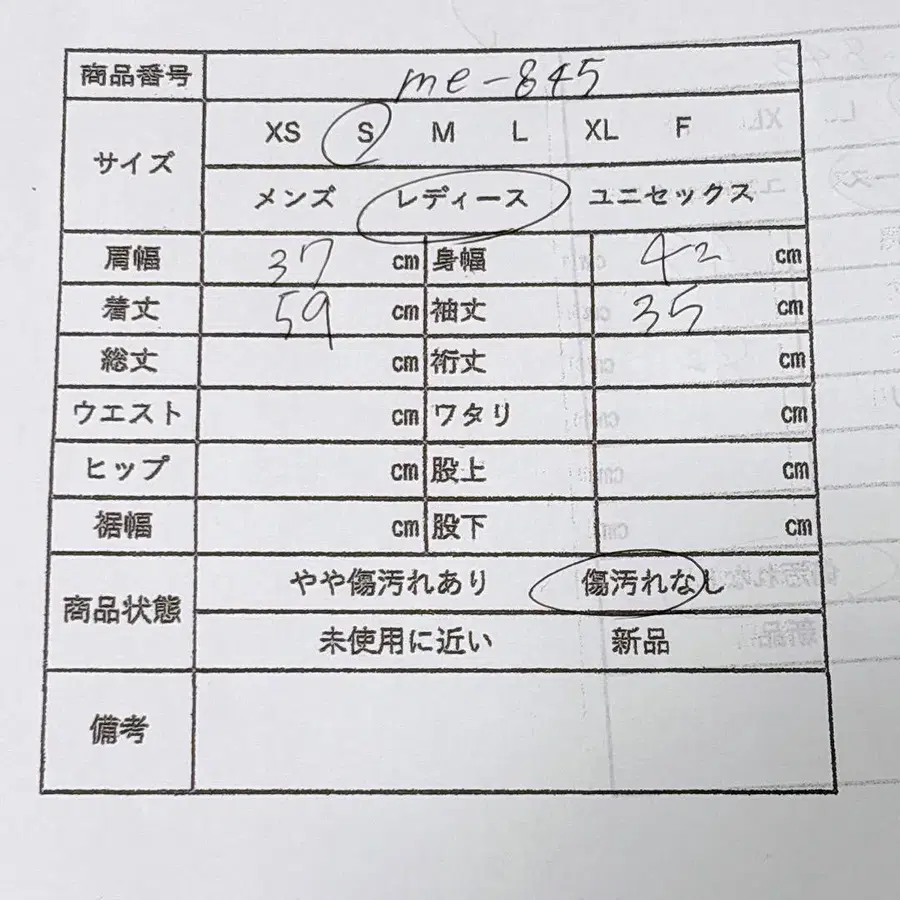 商品番号 me-845
サイズ XS S M L XL F
メンズ レディース ユニセックス
肩幅 37 cm 身幅 42 cm
着丈 59 cm 袖丈 35 cm
総丈 cm 裄丈 cm
ウエスト cm ワタリ cm
ヒップ cm 股上 cm
裾幅 cm 股下 cm
商品状態 やや傷汚れあり 傷汚れなし
未使用に近い 新品
備考